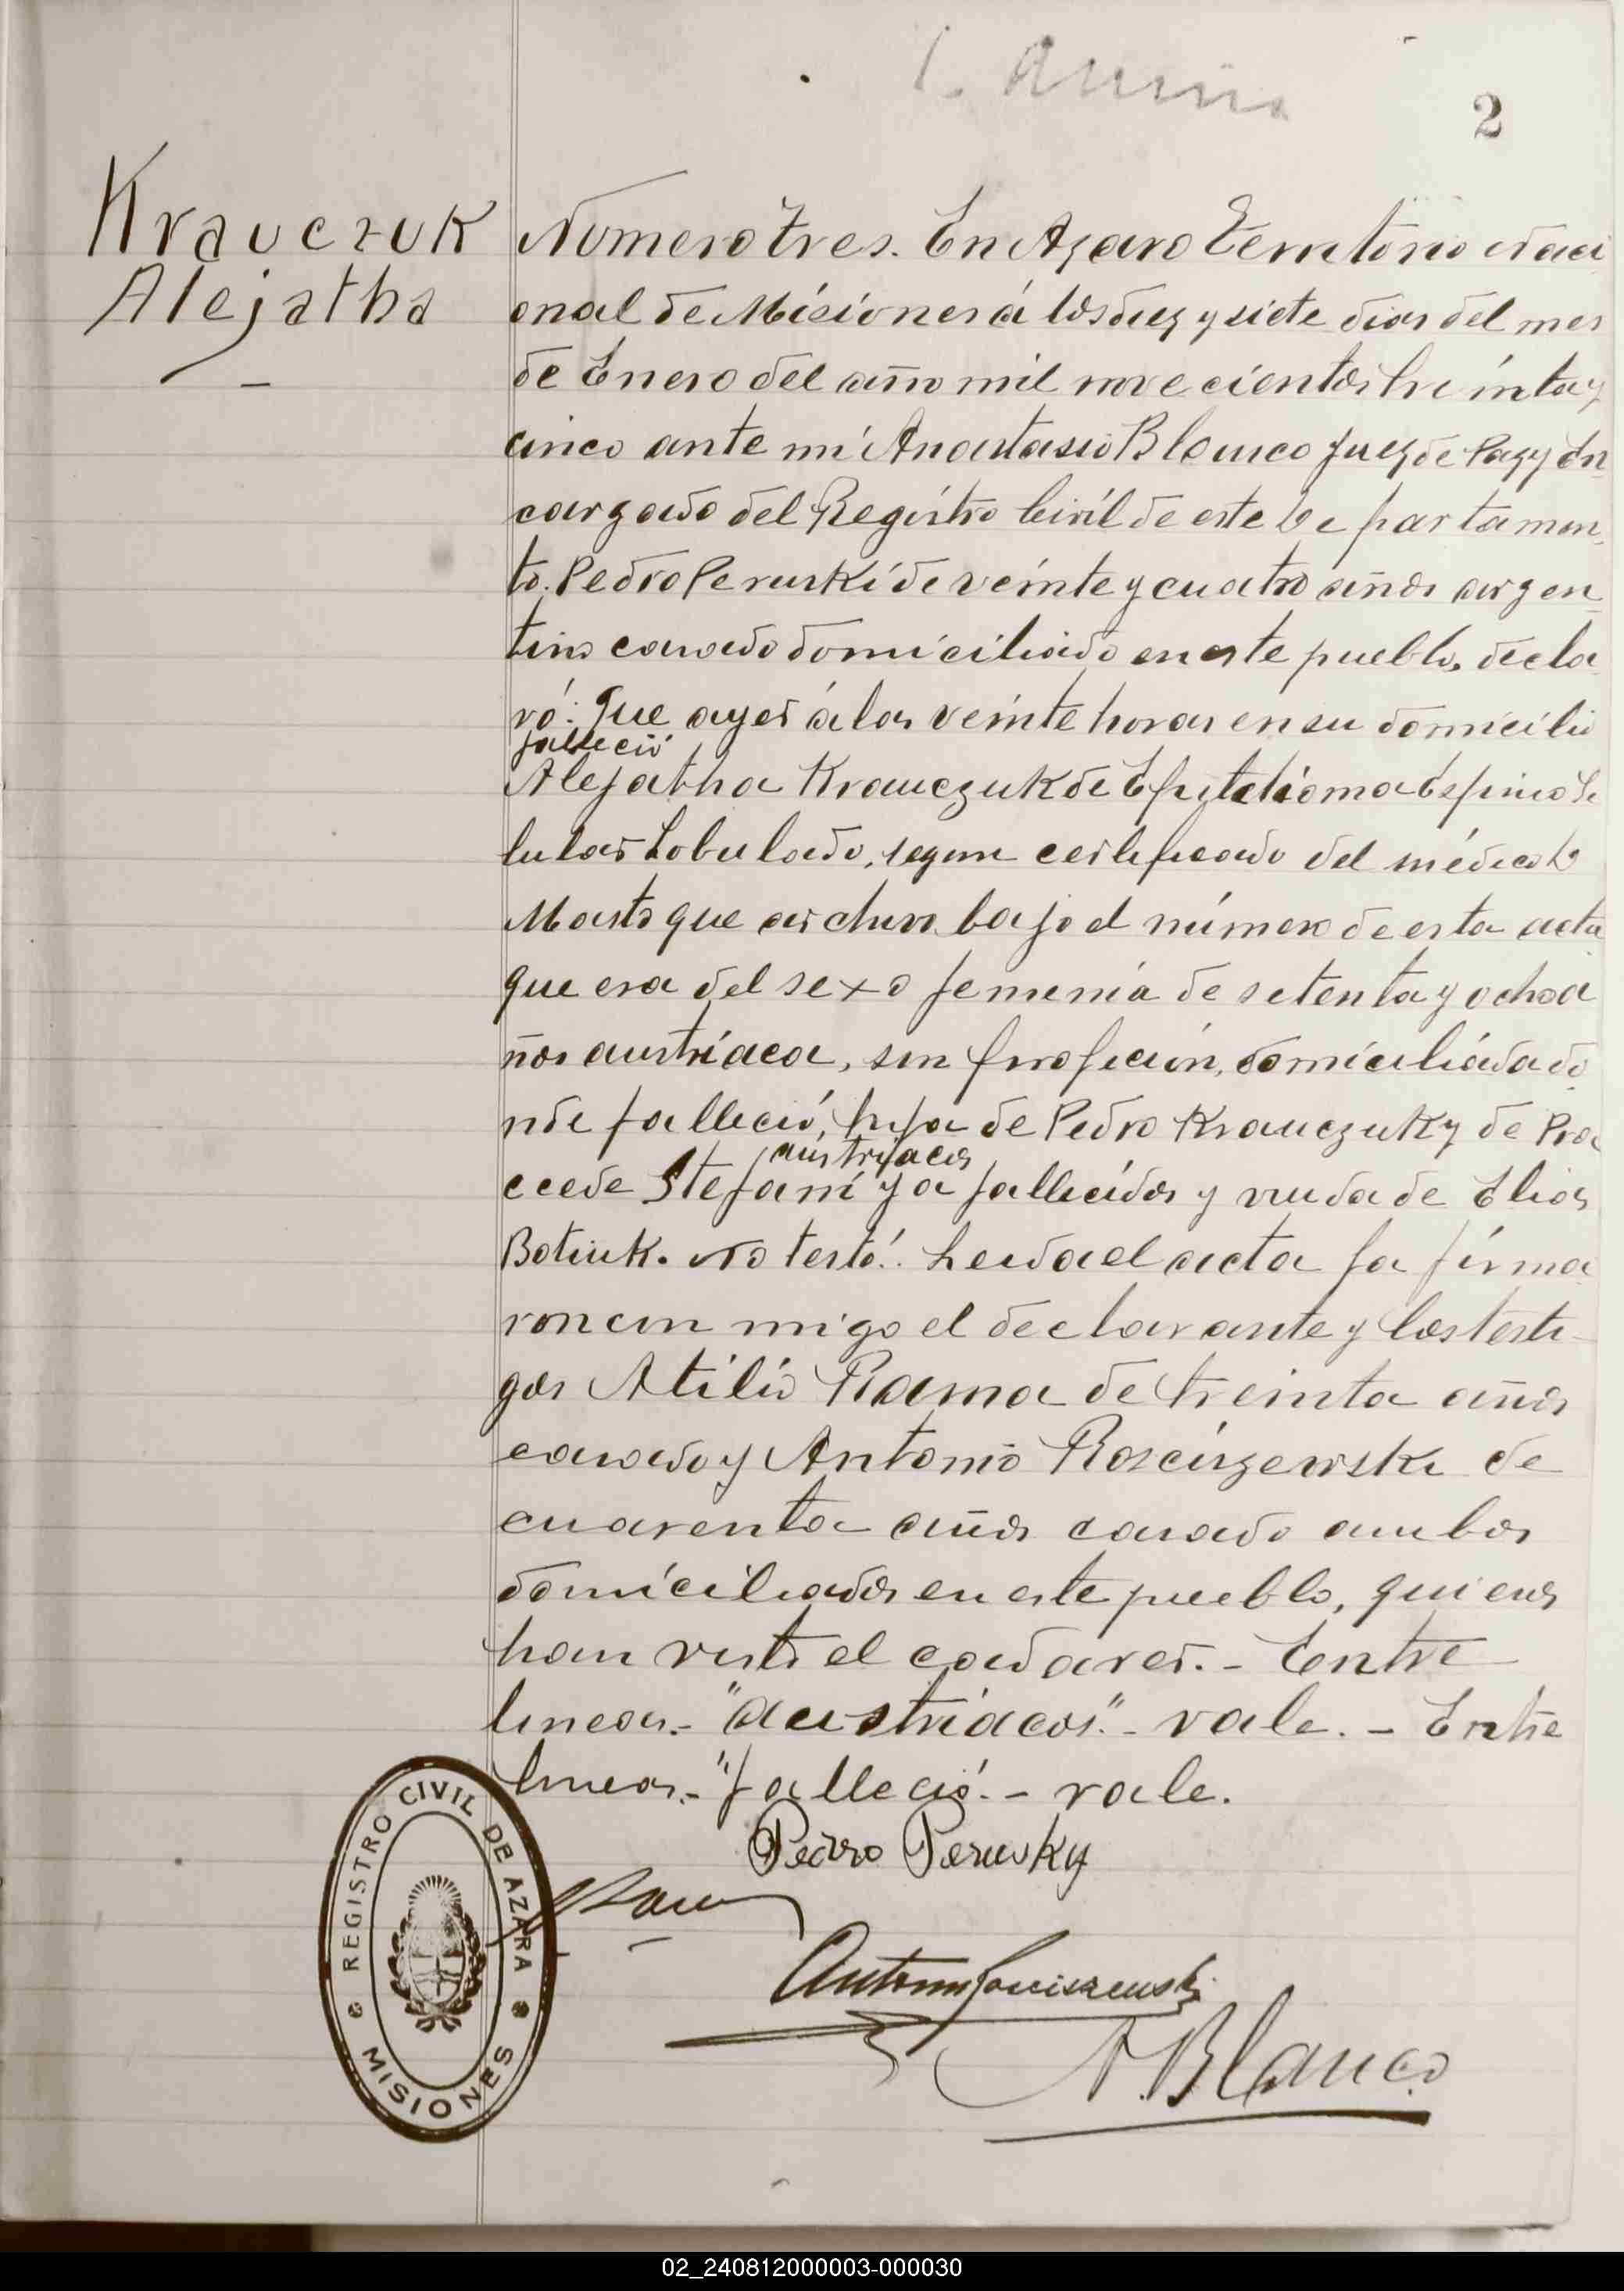 2
Kravczuk
Alejatha
Numero Tres. En Azara Territorio Naci
onal de Misiones á los diez y siete dias del mes
de Enero del año mil nove cientos treinta y
cinco ante mi Anastasio Blanco Juez de Paz y En
cargado del Registro Civil de este De partamen
to. Pedro Peruski de veinte y cuatro años argen
tino casado domiciliado en este pueblo, decla
ró: Que ayer á las veinte horas en su domicilio
falleció
Alejatha Krauczuk de Epitelioma Espino Se
lular Lobulado, segun certificado del médico
que archivo bajo el número de esta acta
que era del sexo femenia de setenta y ocho a
ños austríaca, sin profecion, domiciliada do
nde falleció, hija de Pedro Krauczuk y de Pra
austriacos
ccede Stefani ya fallecidos y viuda de Elias
Botiuk. No testó. Leida el acta la firma
ron con migo el declarante y los testi
gos Atilio Rama de treinta años
casado y Antonio Rosciszewski de
cuarenta años casado ambos
domiciliados en este pueblo, quienes
han visto el cadaver. - Entre
lineas.- "austriacos".- vale. - Entre
lineas.- "falleció. - vale.
Pedro Perusky
A. Blanco
REGISTRO CIVIL DE AZARA
MISIONES
02_240812000003-000030